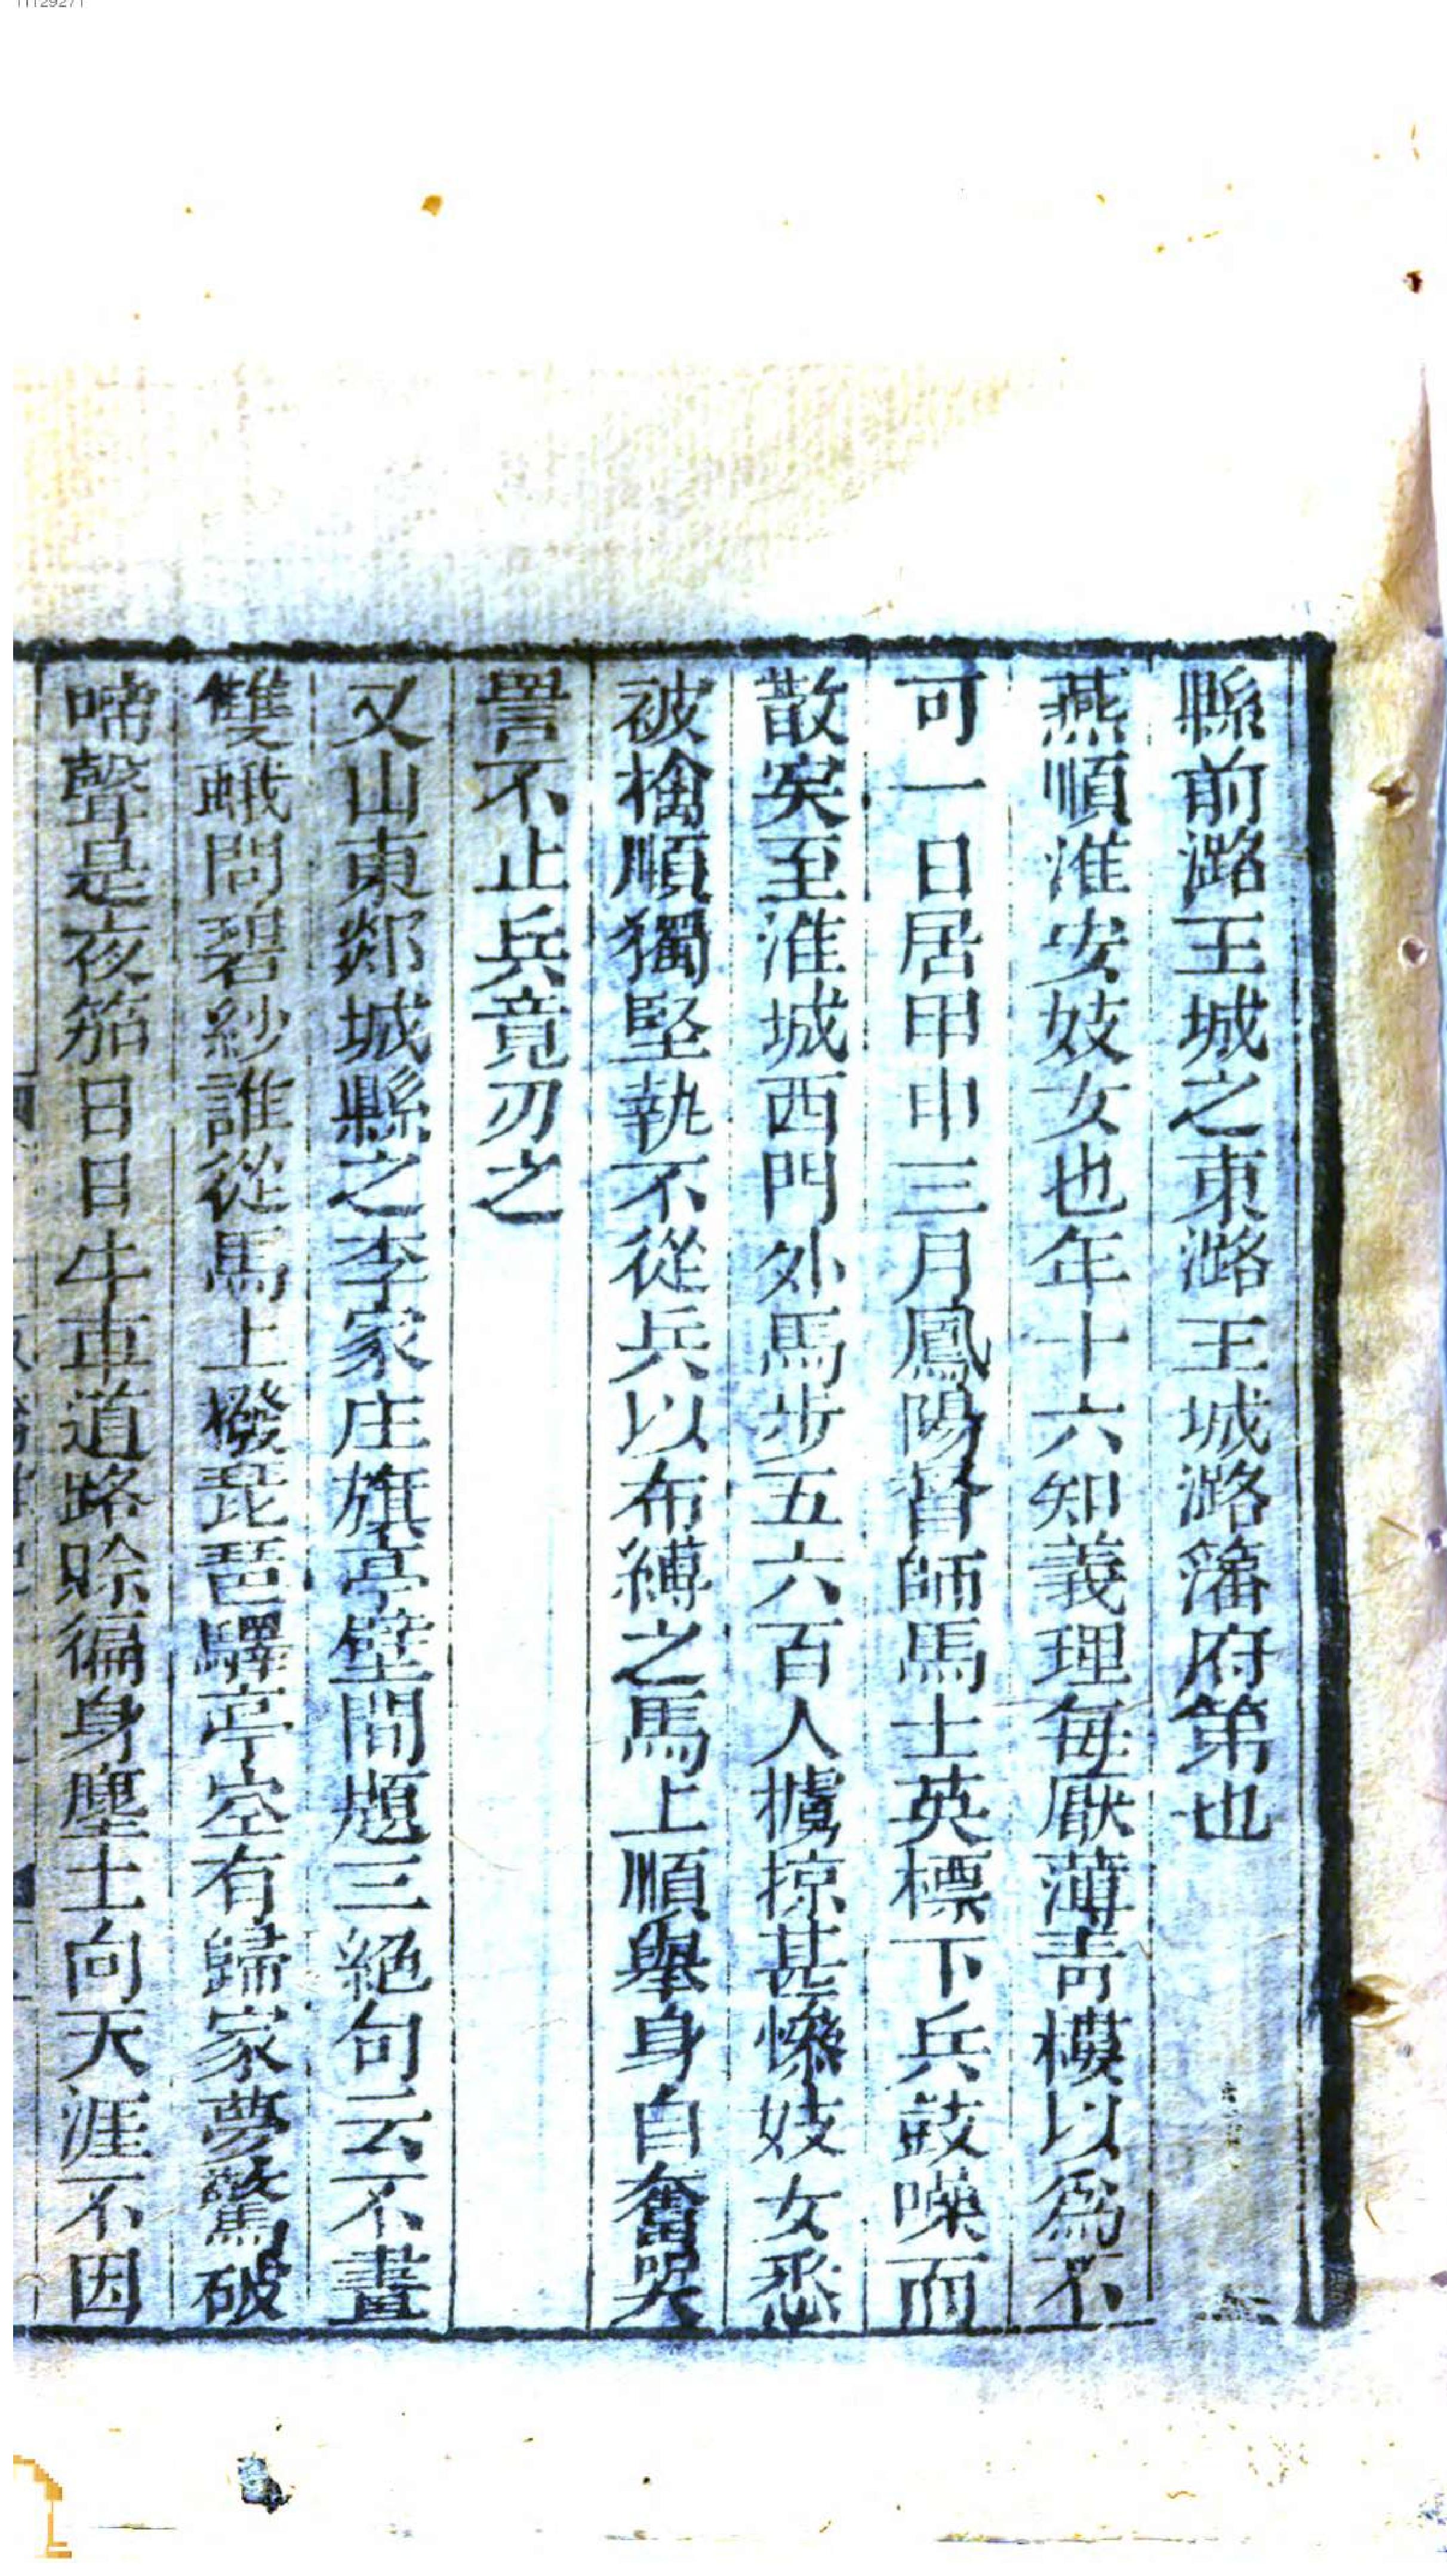 縣前潞王城之東潞王城潞籓府第也
燕順淮安妓女也年十六知義理每厭薄青樓以爲不
可一日居甲申三月鳳陽督師馬士英標下兵鼓噪而
散矣至淮城西門外馬步五六百人擄掠甚慘妓女悉
被擒順獨堅執不從兵以布縛之馬上順舉身自奮哭
詈不止兵竟刃之
又山東郯城縣之李家庄旗亭壁間題三絕句云不畫
雙蛾問碧紗誰從馬上撥琵琶驛亭空有歸家夢驚破
啼聲是夜笳日日牛車道路賖徧身塵土向天涯不因